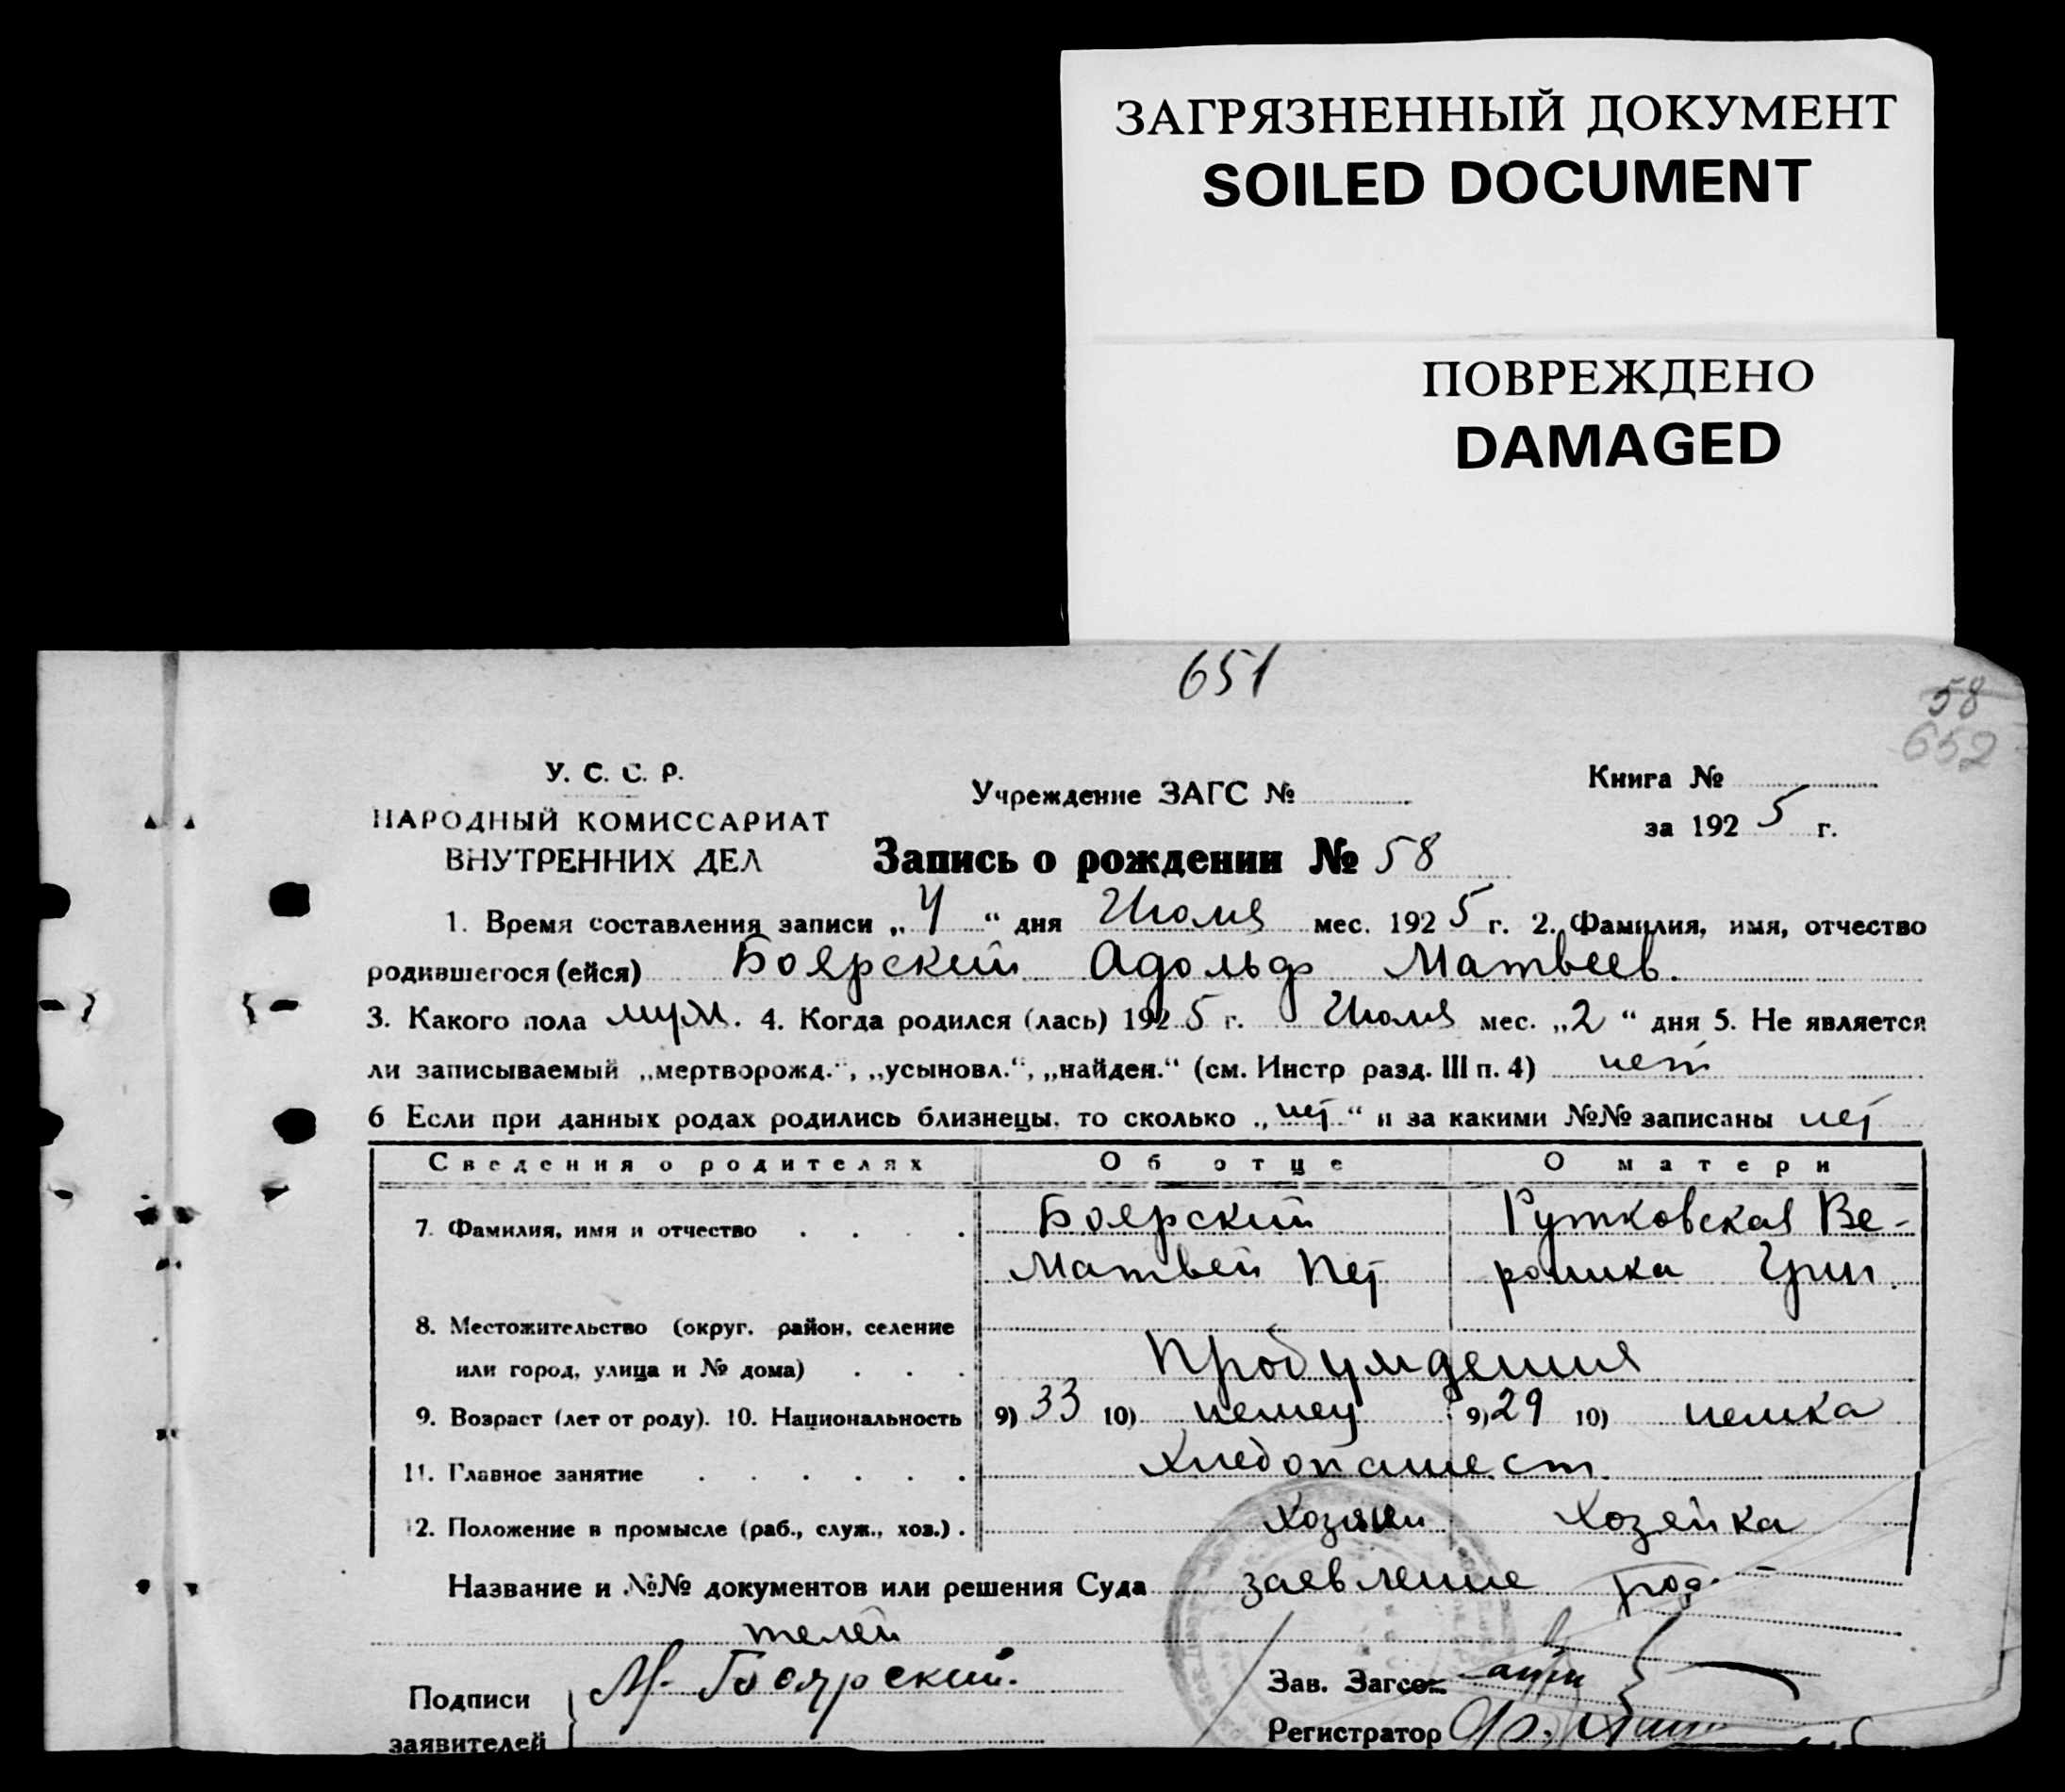 ЗАГРЯЗНЕННЫЙ ДОКУМЕНТ
SOILED DOCUMENT
ПОВРЕЖДЕНО
DAMAGED
651
58
652
У. С. С. Р.
НАРОДНЫЙ КОМИССАРИАТ
ВНУТРЕННИХ ДЕЛ
Учреждение ЗАГС №
Книга №
за 1925 г.
Запись о рождении № 58
1. Время составления записи „4“ дня Июля мес. 1925 г. 2. Фамилия, имя, отчество
родившегося (ейся) Боярский Адольф Матвеев.
3. Какого пола муж. 4. Когда родился (лась) 1925 г. Июля мес. „2“ дня 5. Не является
ли записываемый „мертворожд.“, „усыновл.“, „найден.“ (см. Инстр разд. III п. 4) нет
6 Если при данных родах родились близнецы, то сколько „нет“ и за какими №№ записаны нет
Сведения о родителях Об отце О матери
7. Фамилия, имя и отчество . . . . Боярский Рутковская Ве-
Матвей Пет роника Григ.
8. Местожительство (округ, район, селение
или город, улица и № дома) . . .
9. Возраст (лет от роду). 10. Национальность 9) 33 10) немец 9) 29 10) немка
11. Главное занятие . . . . . . Хлебопашест.
12. Положение в промысле (раб., служ., хоз.) . Хозяин Хозяйка
Название и №№ документов или решения Суда заявление роди-
телей
Подписи
заявителей
М. Боярский.
Зав. Загсом
Регистратор